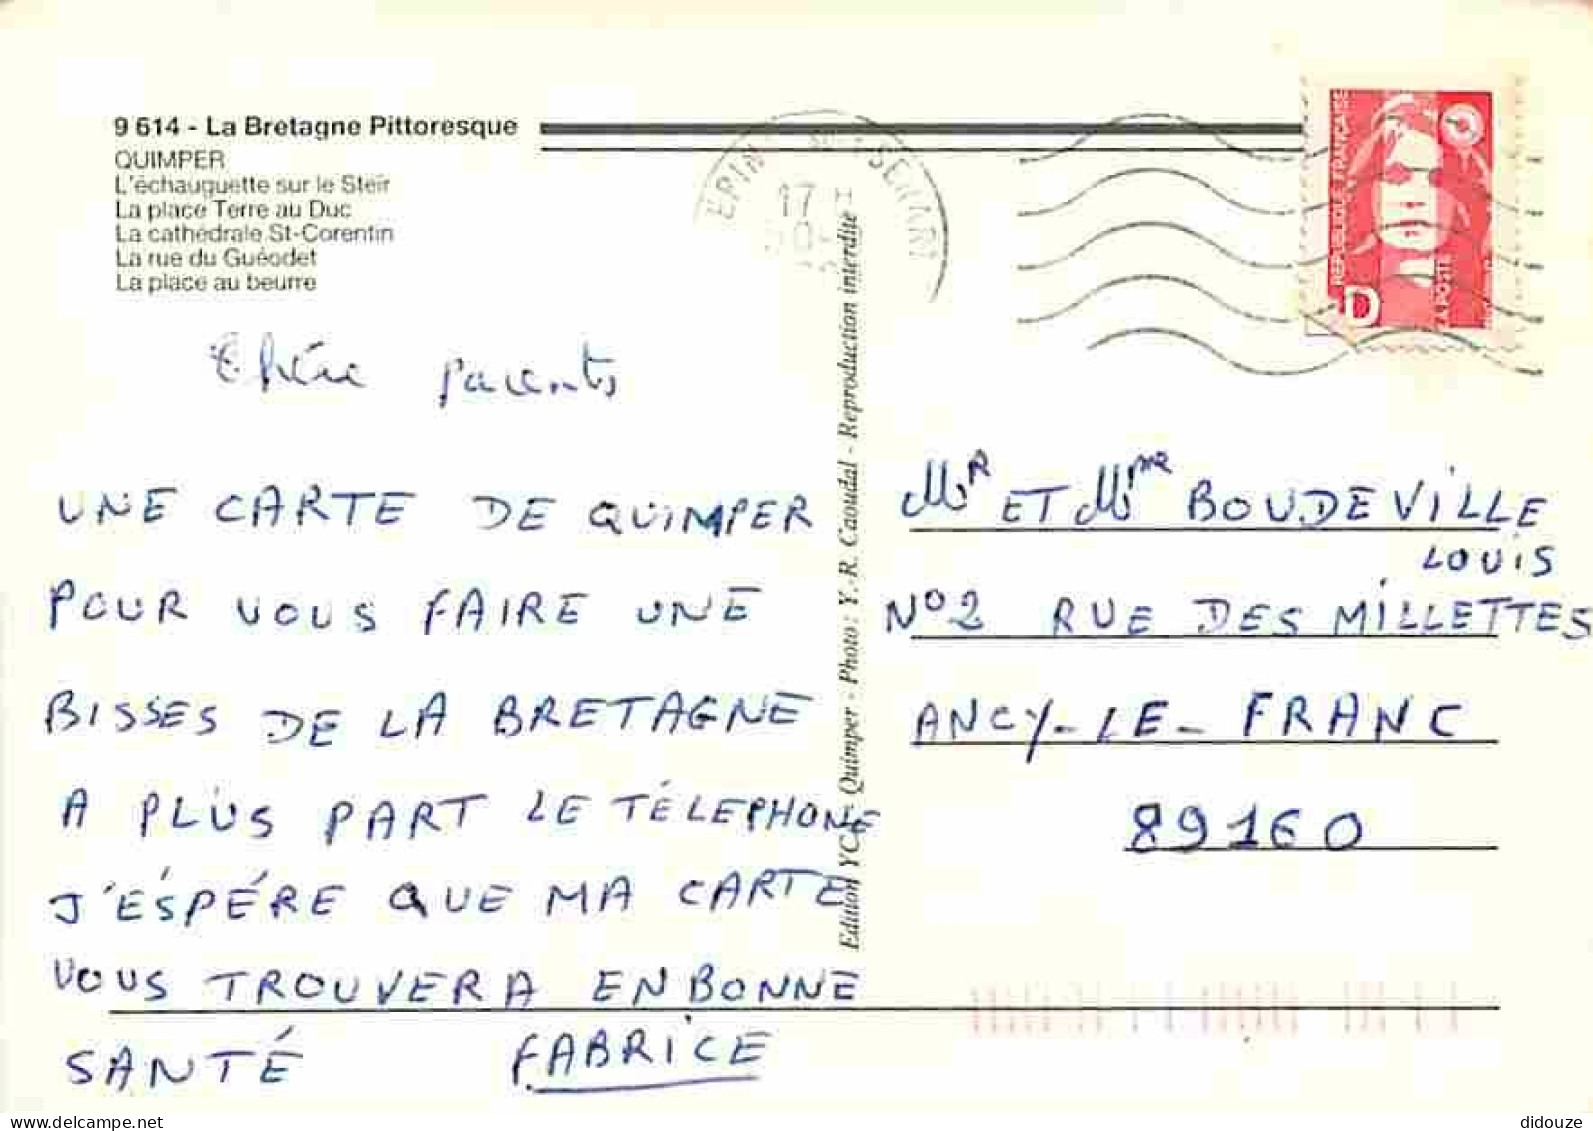 9 614 - La Bretagne Pittoresque
QUIMPER
L'échauguette sur le Steïr
La place Terre au Duc
La cathédrale St-Corentin
La rue du Guéodet
La place au beurre
Chère parents
UNE CARTE DE QUIMPER
POUR VOUS FAIRE UNE
BISSES DE LA BRETAGNE
A PLUS PART LE TÉLEPHONE
J'ÉSPÉRE QUE MA CARTE
VOUS TROUVERA EN BONNE
SANTÉ FABRICE
Edition YCA - Quimper - Photo : Y.-R. Caoudal - Reproduction interdite
17
RÉPUBLIQUE FRANÇAISE
LA POSTE
D
Mr ET Mme BOUDEVILLE
LOUIS
N°2 RUE DES MILLETTES
ANCY-LE-FRANC
89160
didouze